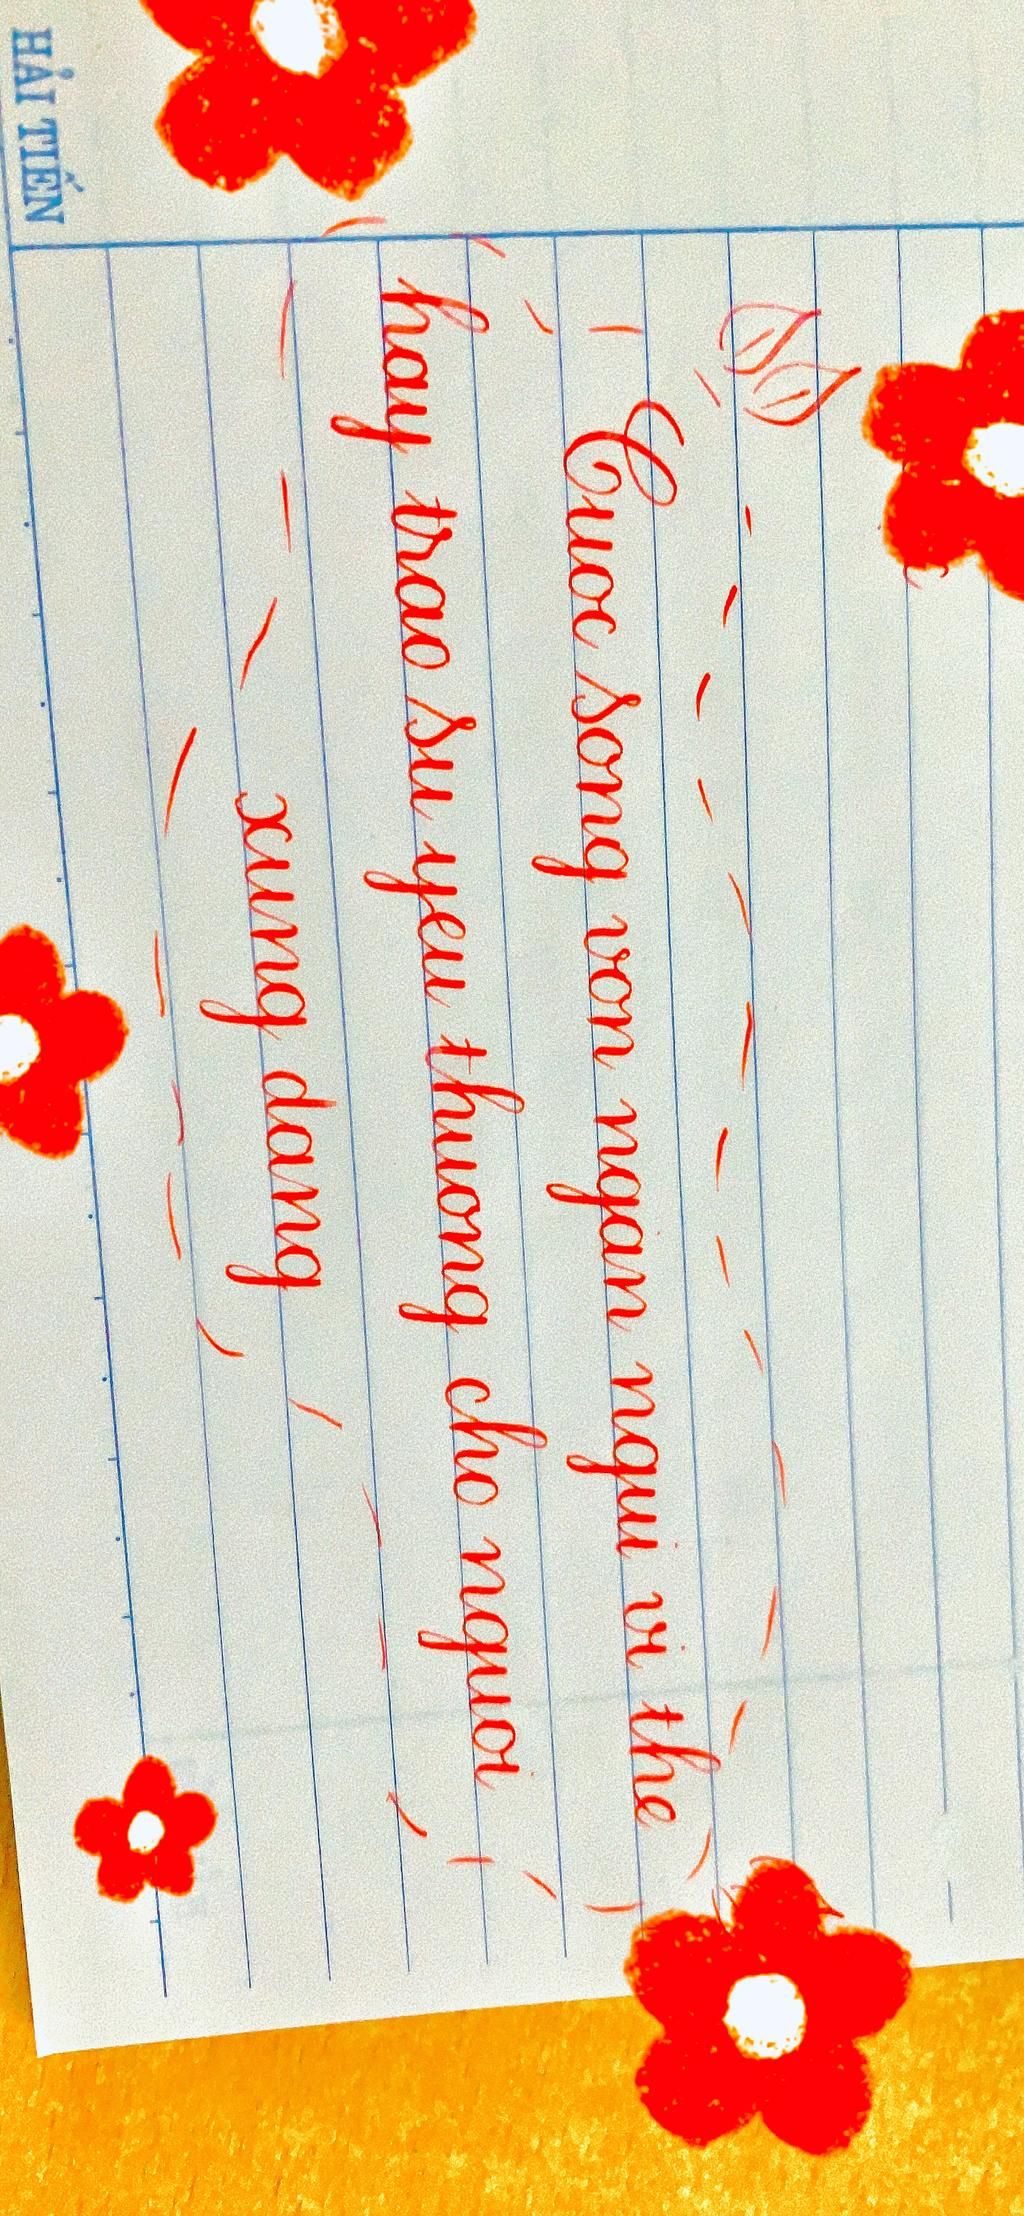 HẢI TIẾN
Cuoc song von ngan ngui vi the
hay trao su yeu thuong cho nguoi
xung dang